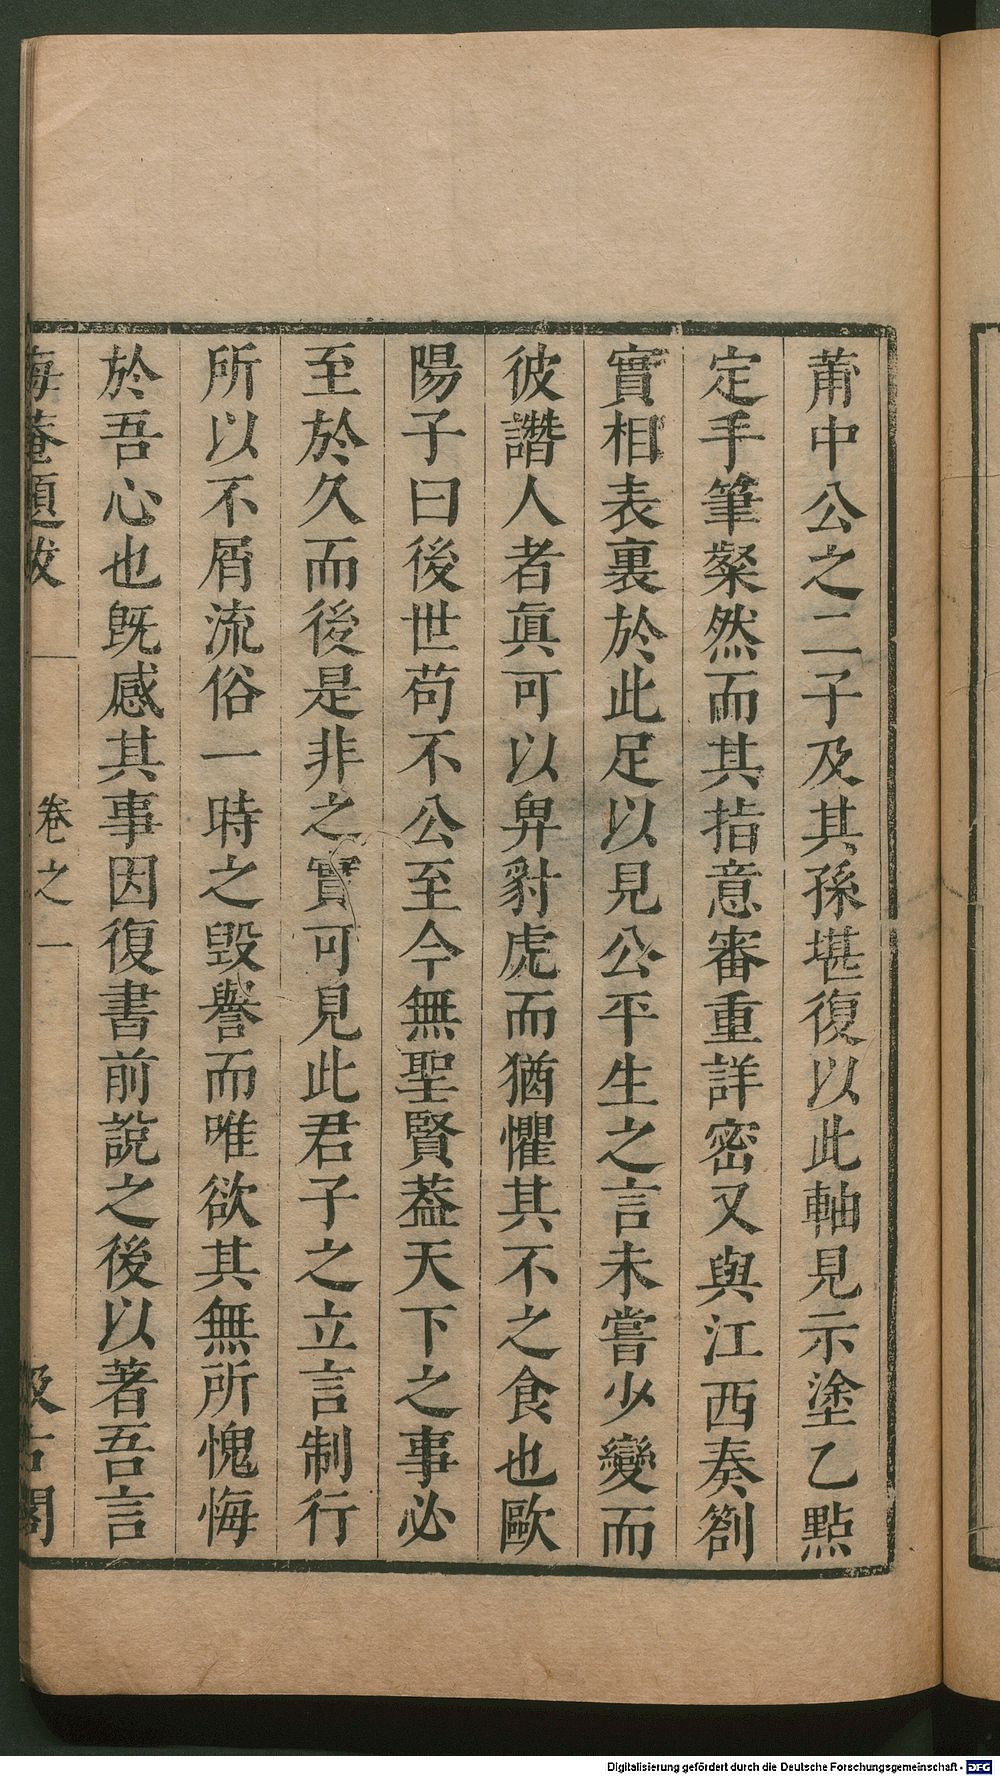 莆中公之二子及其孫堪復以此軸見示塗乙點
定手筆粲然而其指意審重詳密又與江西奏劄
實相表裏於此足以見公平生之言未嘗少變而
彼譖人者眞可以畀豺虎而猶懼其不之食也歐
陽子曰後世苟不公至今無聖賢葢天下之事必
至於久而後是非之實可見此君子之立言制行
所以不屑流俗一時之毀譽而唯欲其無所愧悔
於吾心也旣感其事因復書前說之後以著吾言
晦菴題跋
卷之一
汲古閣
Digitalisierung gefördert durch die Deutsche Forschungsgemeinschaft - DFG